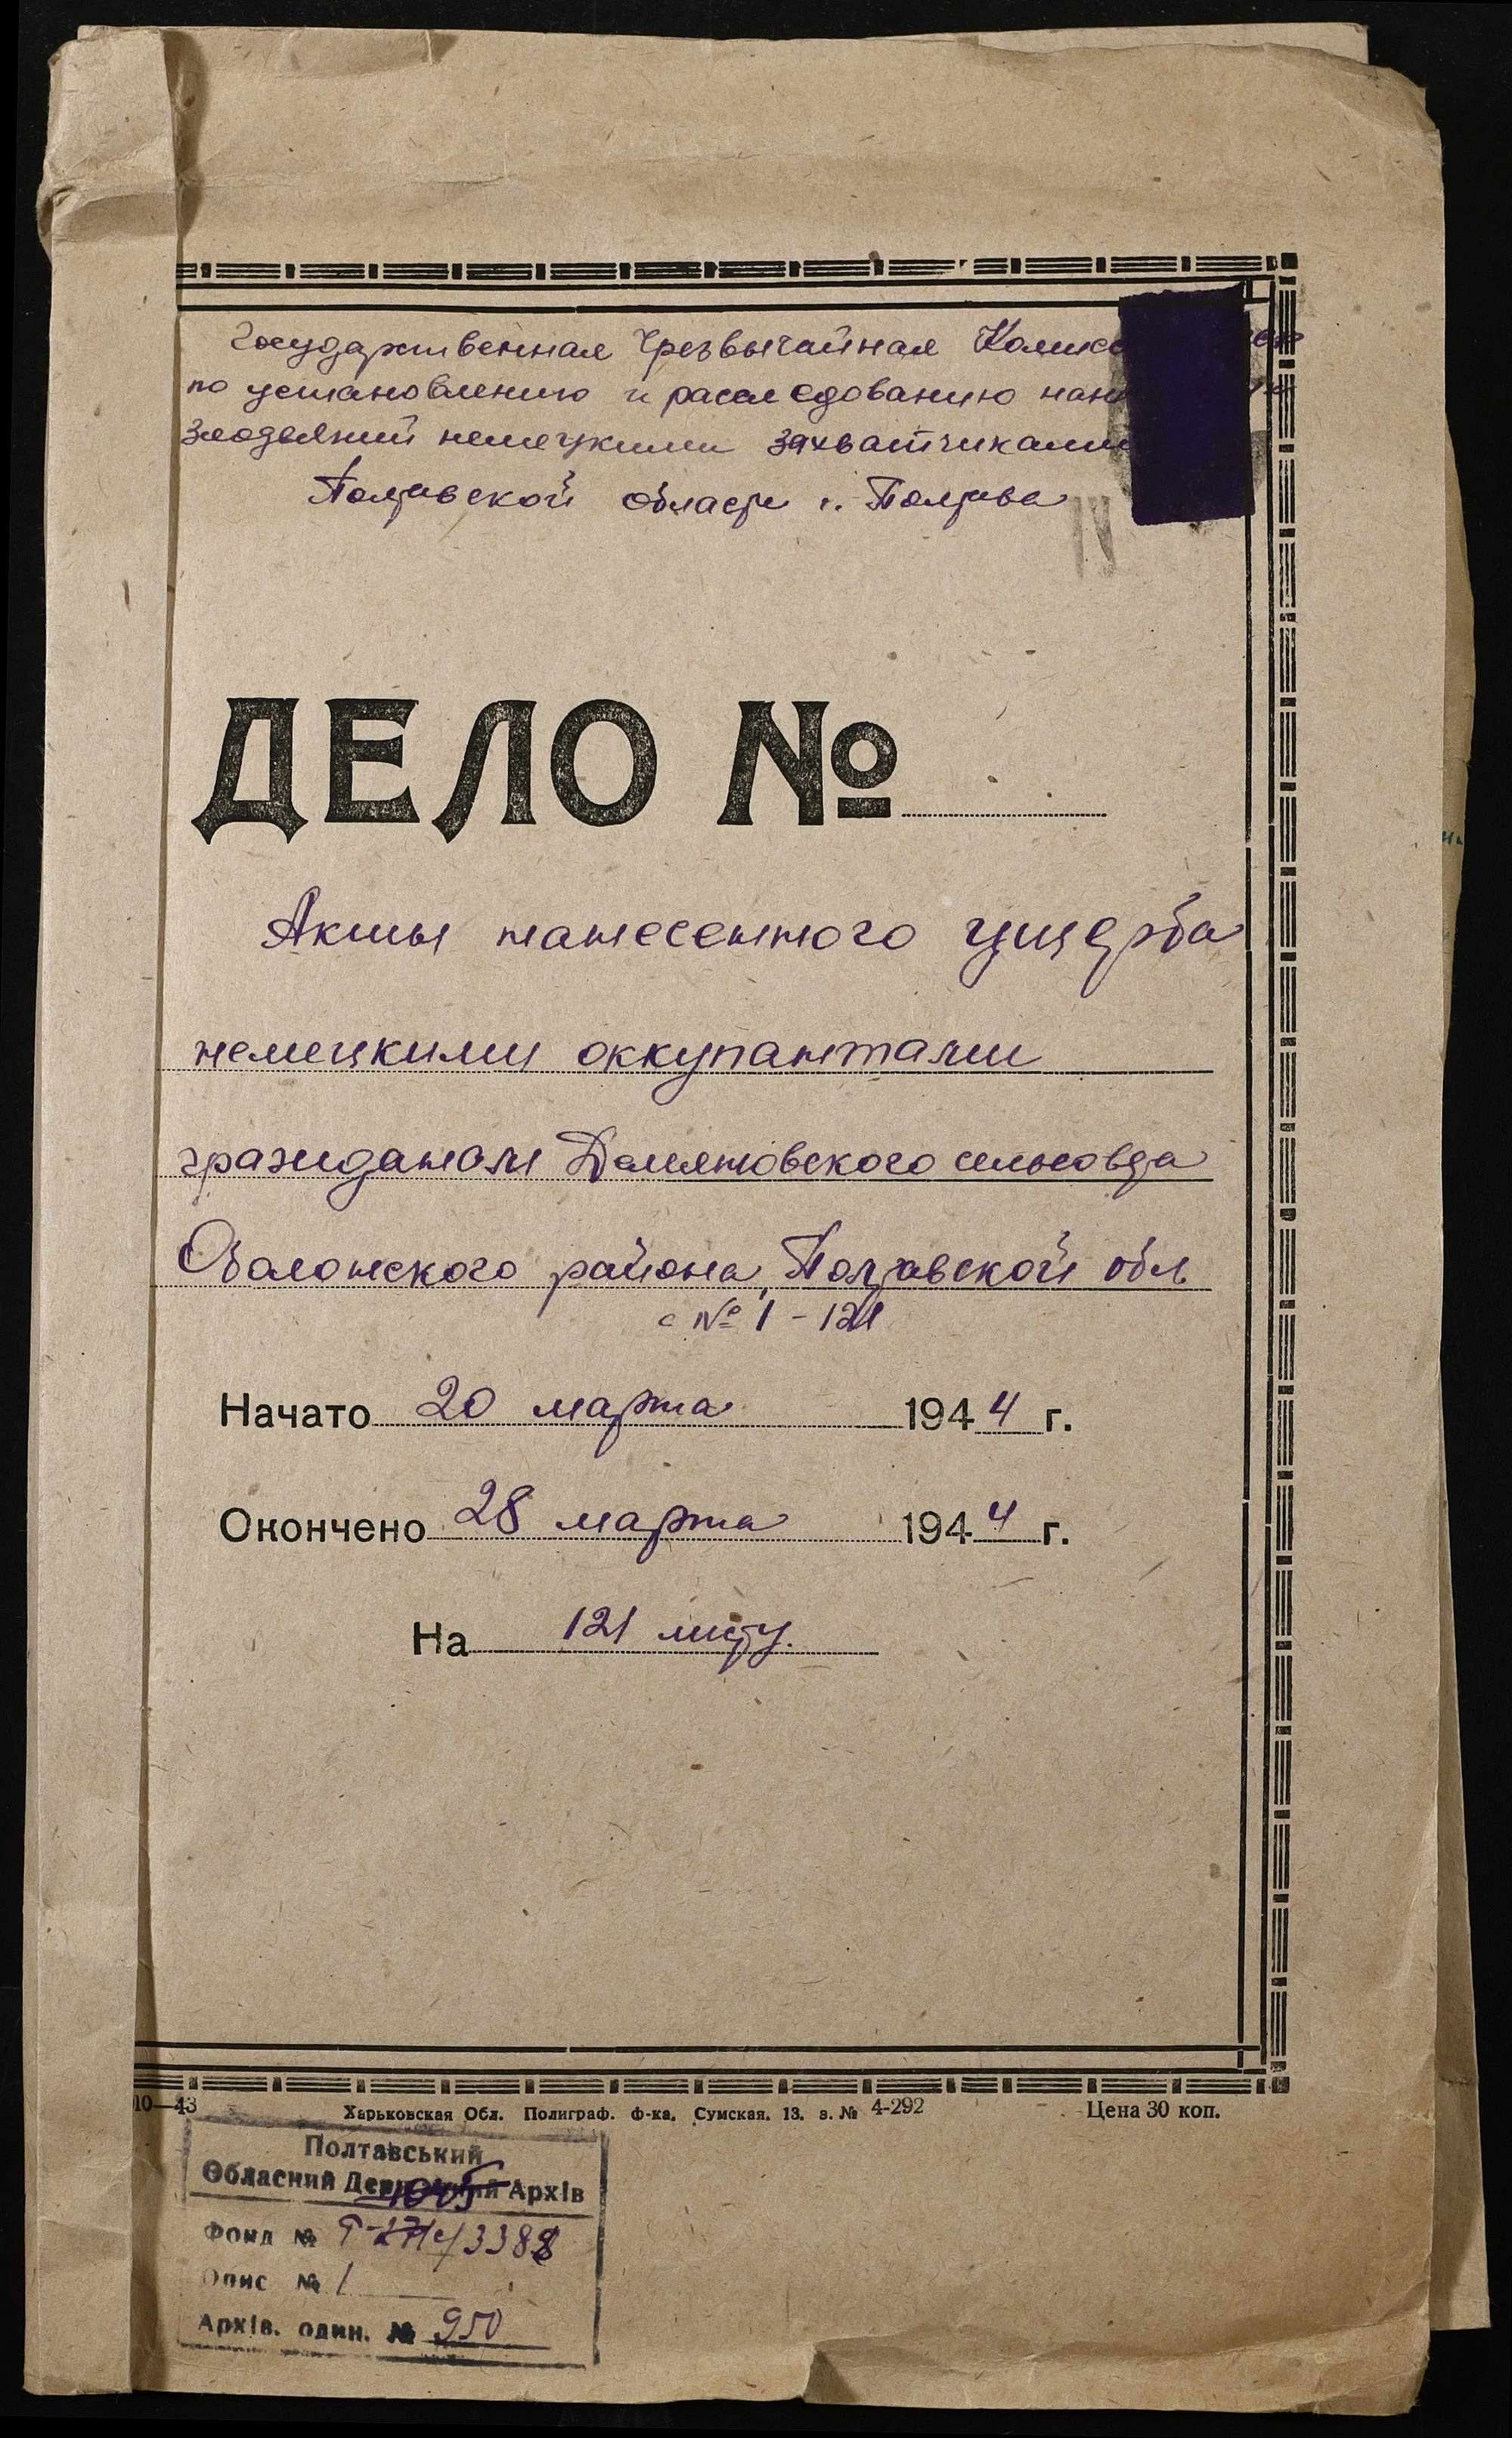 Государственная Чрезвычайная
по установлению и расследованию
злодеяний немецкими захватчиками
Полтавской области г. Полтава
IV
ДЕЛО №
Акты нанесенного ущерба
немецкими оккупантами
гражданам Демяновского сельсовета
Оболонского района, Полтавской обл
с № 1 - 121
Начато 20 марта 1944 г.
Окончено 28 марта 1944 г.
На 121 листу.
10—43 Харьковская Обл. Полиграф. ф-ка, Сумская, 13. з. № 4-292 Цена 30 коп.
Полтавський
Обласний Державний Архів
Фонд № 3388
Опис № 1
Архів. один. № 950